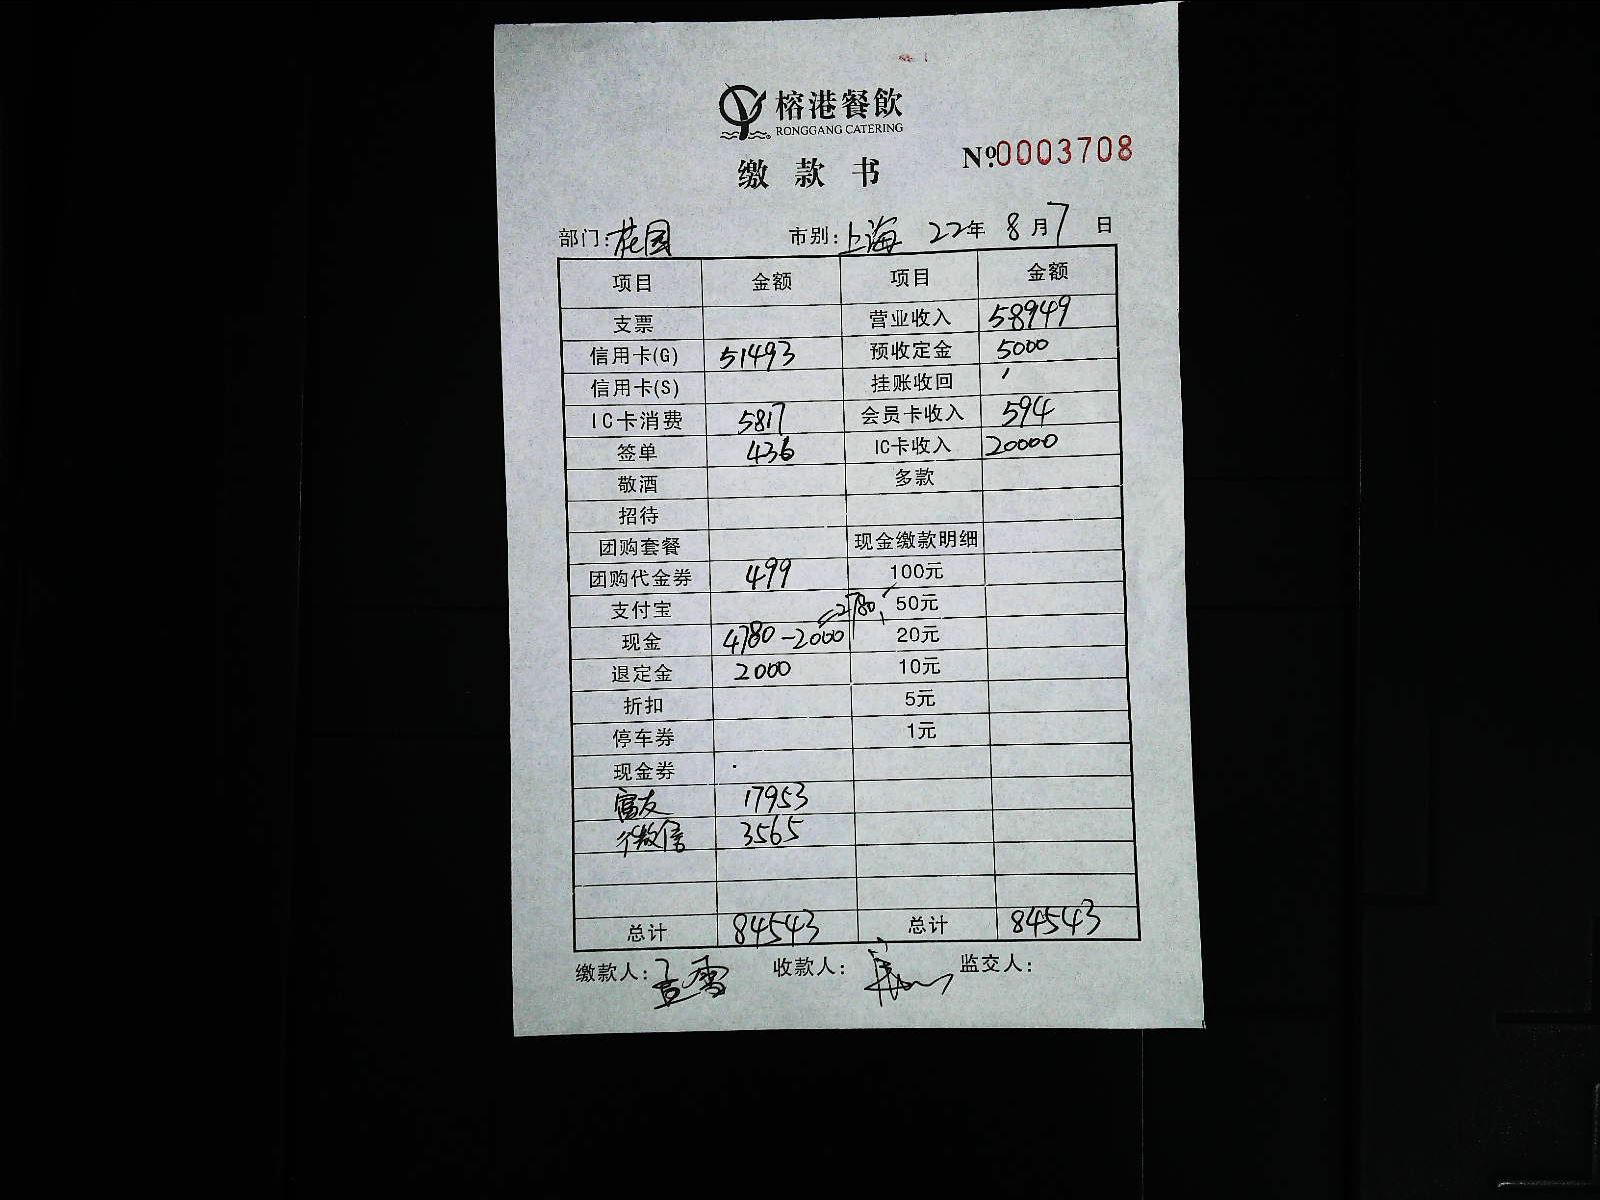 榕港餐飲
RONGGANG CATERING
缴款书 №0003708
部门:花园 市别:上海 22年 8月7日
项目 金额 项目 金额
支票 营业收入 58949
信用卡(G) 51493 预收定金 5000
信用卡(S) 挂账收回
IC卡消费 5817 会员卡收入 594
签单 436 IC卡收入 20000
敬酒 多款
招待
团购套餐 现金缴款明细
团购代金券 499 100元
支付宝 =2780 50元
现金 4780-2000 20元
退定金 2000 10元
折扣 5元
停车券 1元
现金券
富友 17953
个微信 3565
总计 84543 总计 84543
缴款人: 收款人: 监交人: